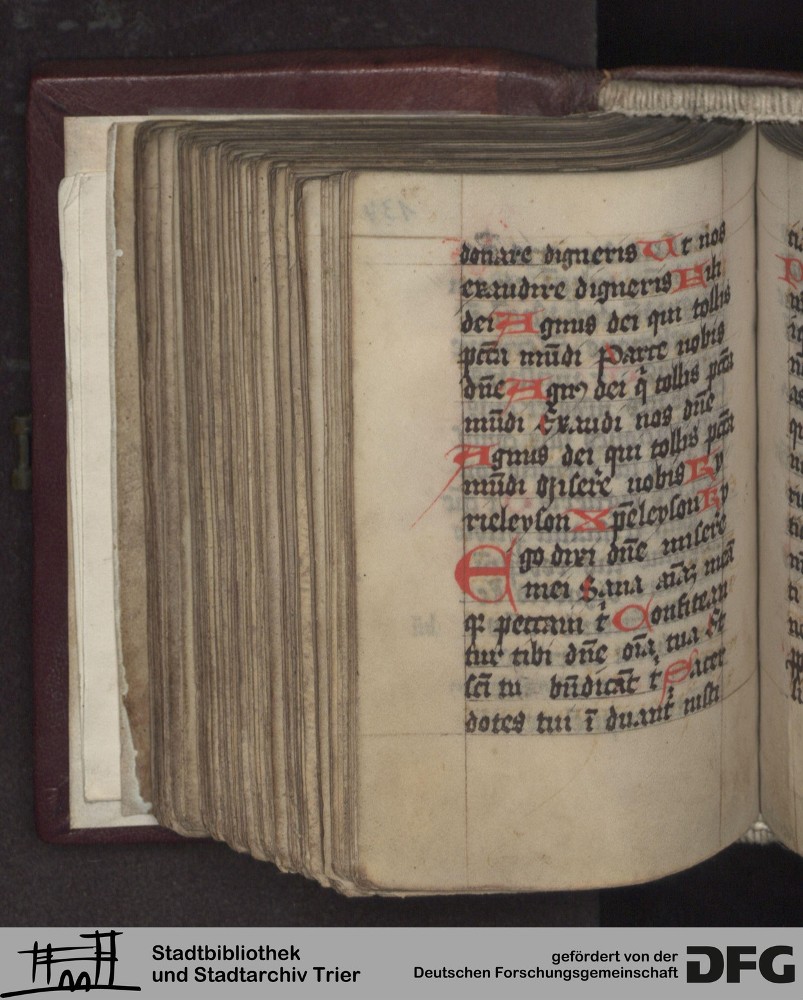 donare digneris Ut nos
exaudire digneris Fili
dei Agnus dei qui tollis
pctā mūdi Parce nobis
dn̄e Agn9 dei q̇ tollis pctā
mūdi Exaudi nos dn̄e
Agnus dei qui tollis pctā
mūdi Miserē nobis Ky
rieleyson Xp̄eleyson Ky
Ego dixi dn̄e miserē
mei Sana aīaʒ meā
qꝛ peccaui t̄ Confitean
tur tibi dn̄e oīa tua Et
sc̄i tu bn̄dicāt t̄ Sacer
dotes tui īduant̄ iusti
134
Stadtbibliothek
und Stadtarchiv Trier
gefördert von der
Deutschen Forschungsgemeinschaft
DFG